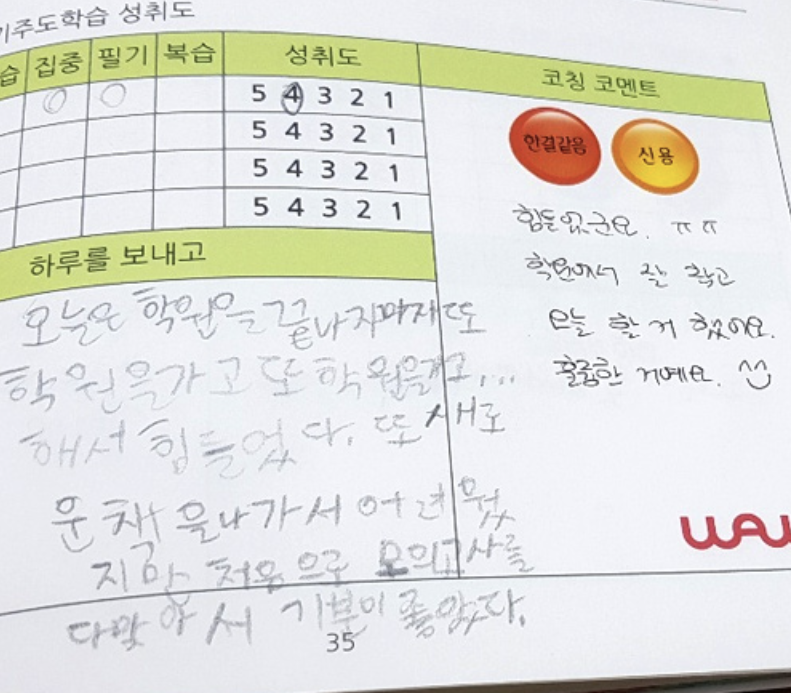 기주도학습 성취도
습 집중 필기 복습 성취도 코칭 코멘트
5 4 3 2 1
5 4 3 2 1
5 4 3 2 1
5 4 3 2 1
한결같음 신용
힘들었군요. ㅠㅠ
학원에서 잘 하고
오늘 할 거 했어요.
훌륭한 거예요.
하루를 보내고
오늘은 학원을 끝나자마자 또
학원을가고 또 학원을가고,...
해서 힘들었다. 또 새로
운 책을나가서 어려웠
지만 처음으로 모의고사를
다맞아서 기분이 좋았다.
35